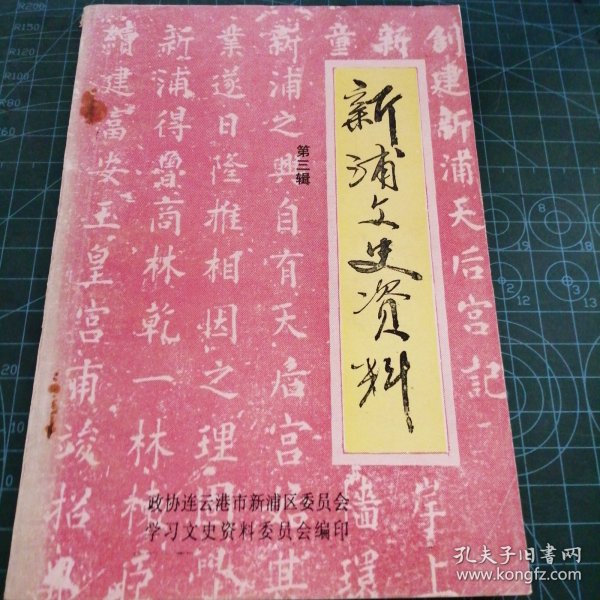 新浦文史资料
第三辑
政协连云港市新浦区委员会
学习文史资料委员会编印
創建新浦天后宫記
新浦之興自有天后宫
業遂日隆推相因之理
新浦得魯商林乾一林
續建富安玉皇宫甫竣招
孔夫子旧书网
www.kongfz.com